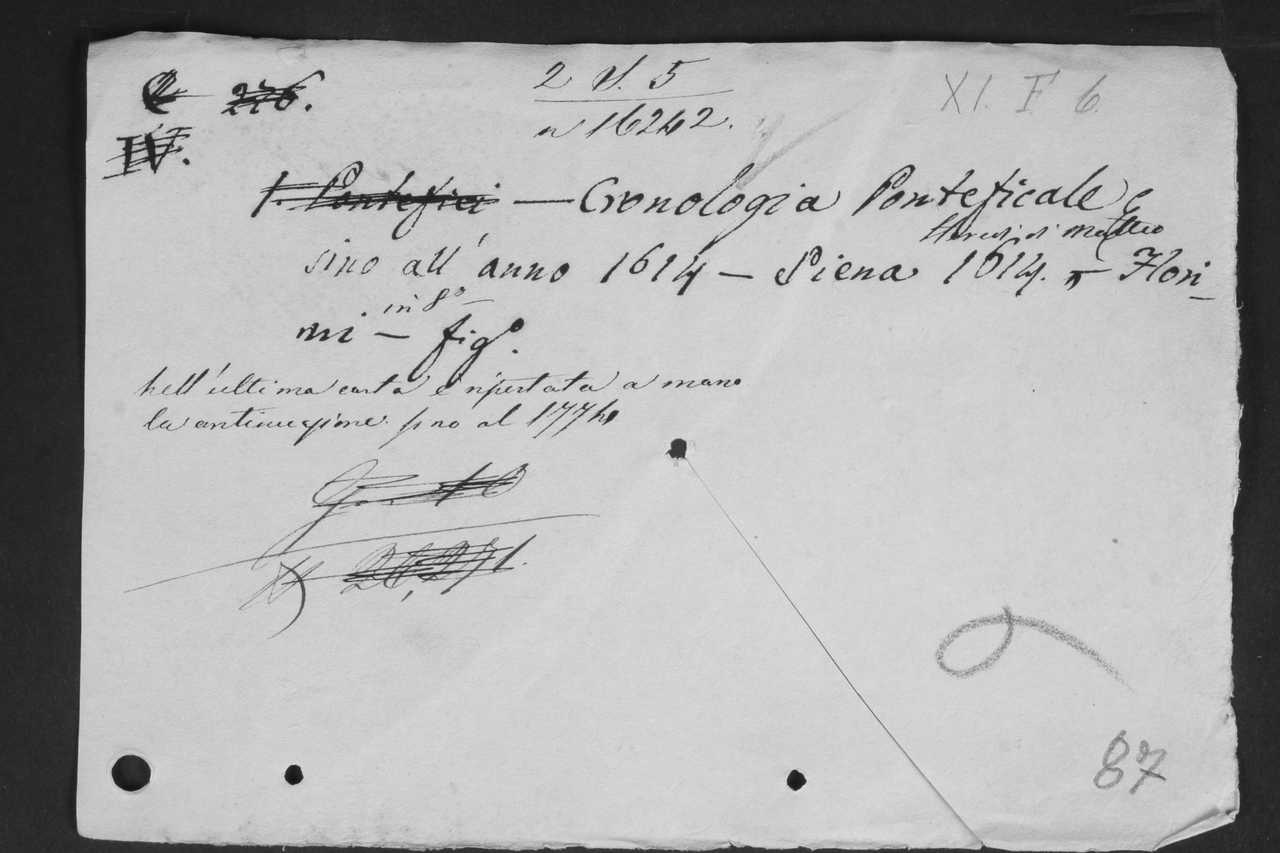 2 276.
2 S. 5
n 16242.
XI. F 6.
IV.
1. Pontefici — Cronologia Pontificale
di Matteo
sino all' anno 1614 — Siena 1614. — Flori-
in 8°
mi — fig°.
nell' ultima carta è riportata a mano
la continuazione fino al 1774
87